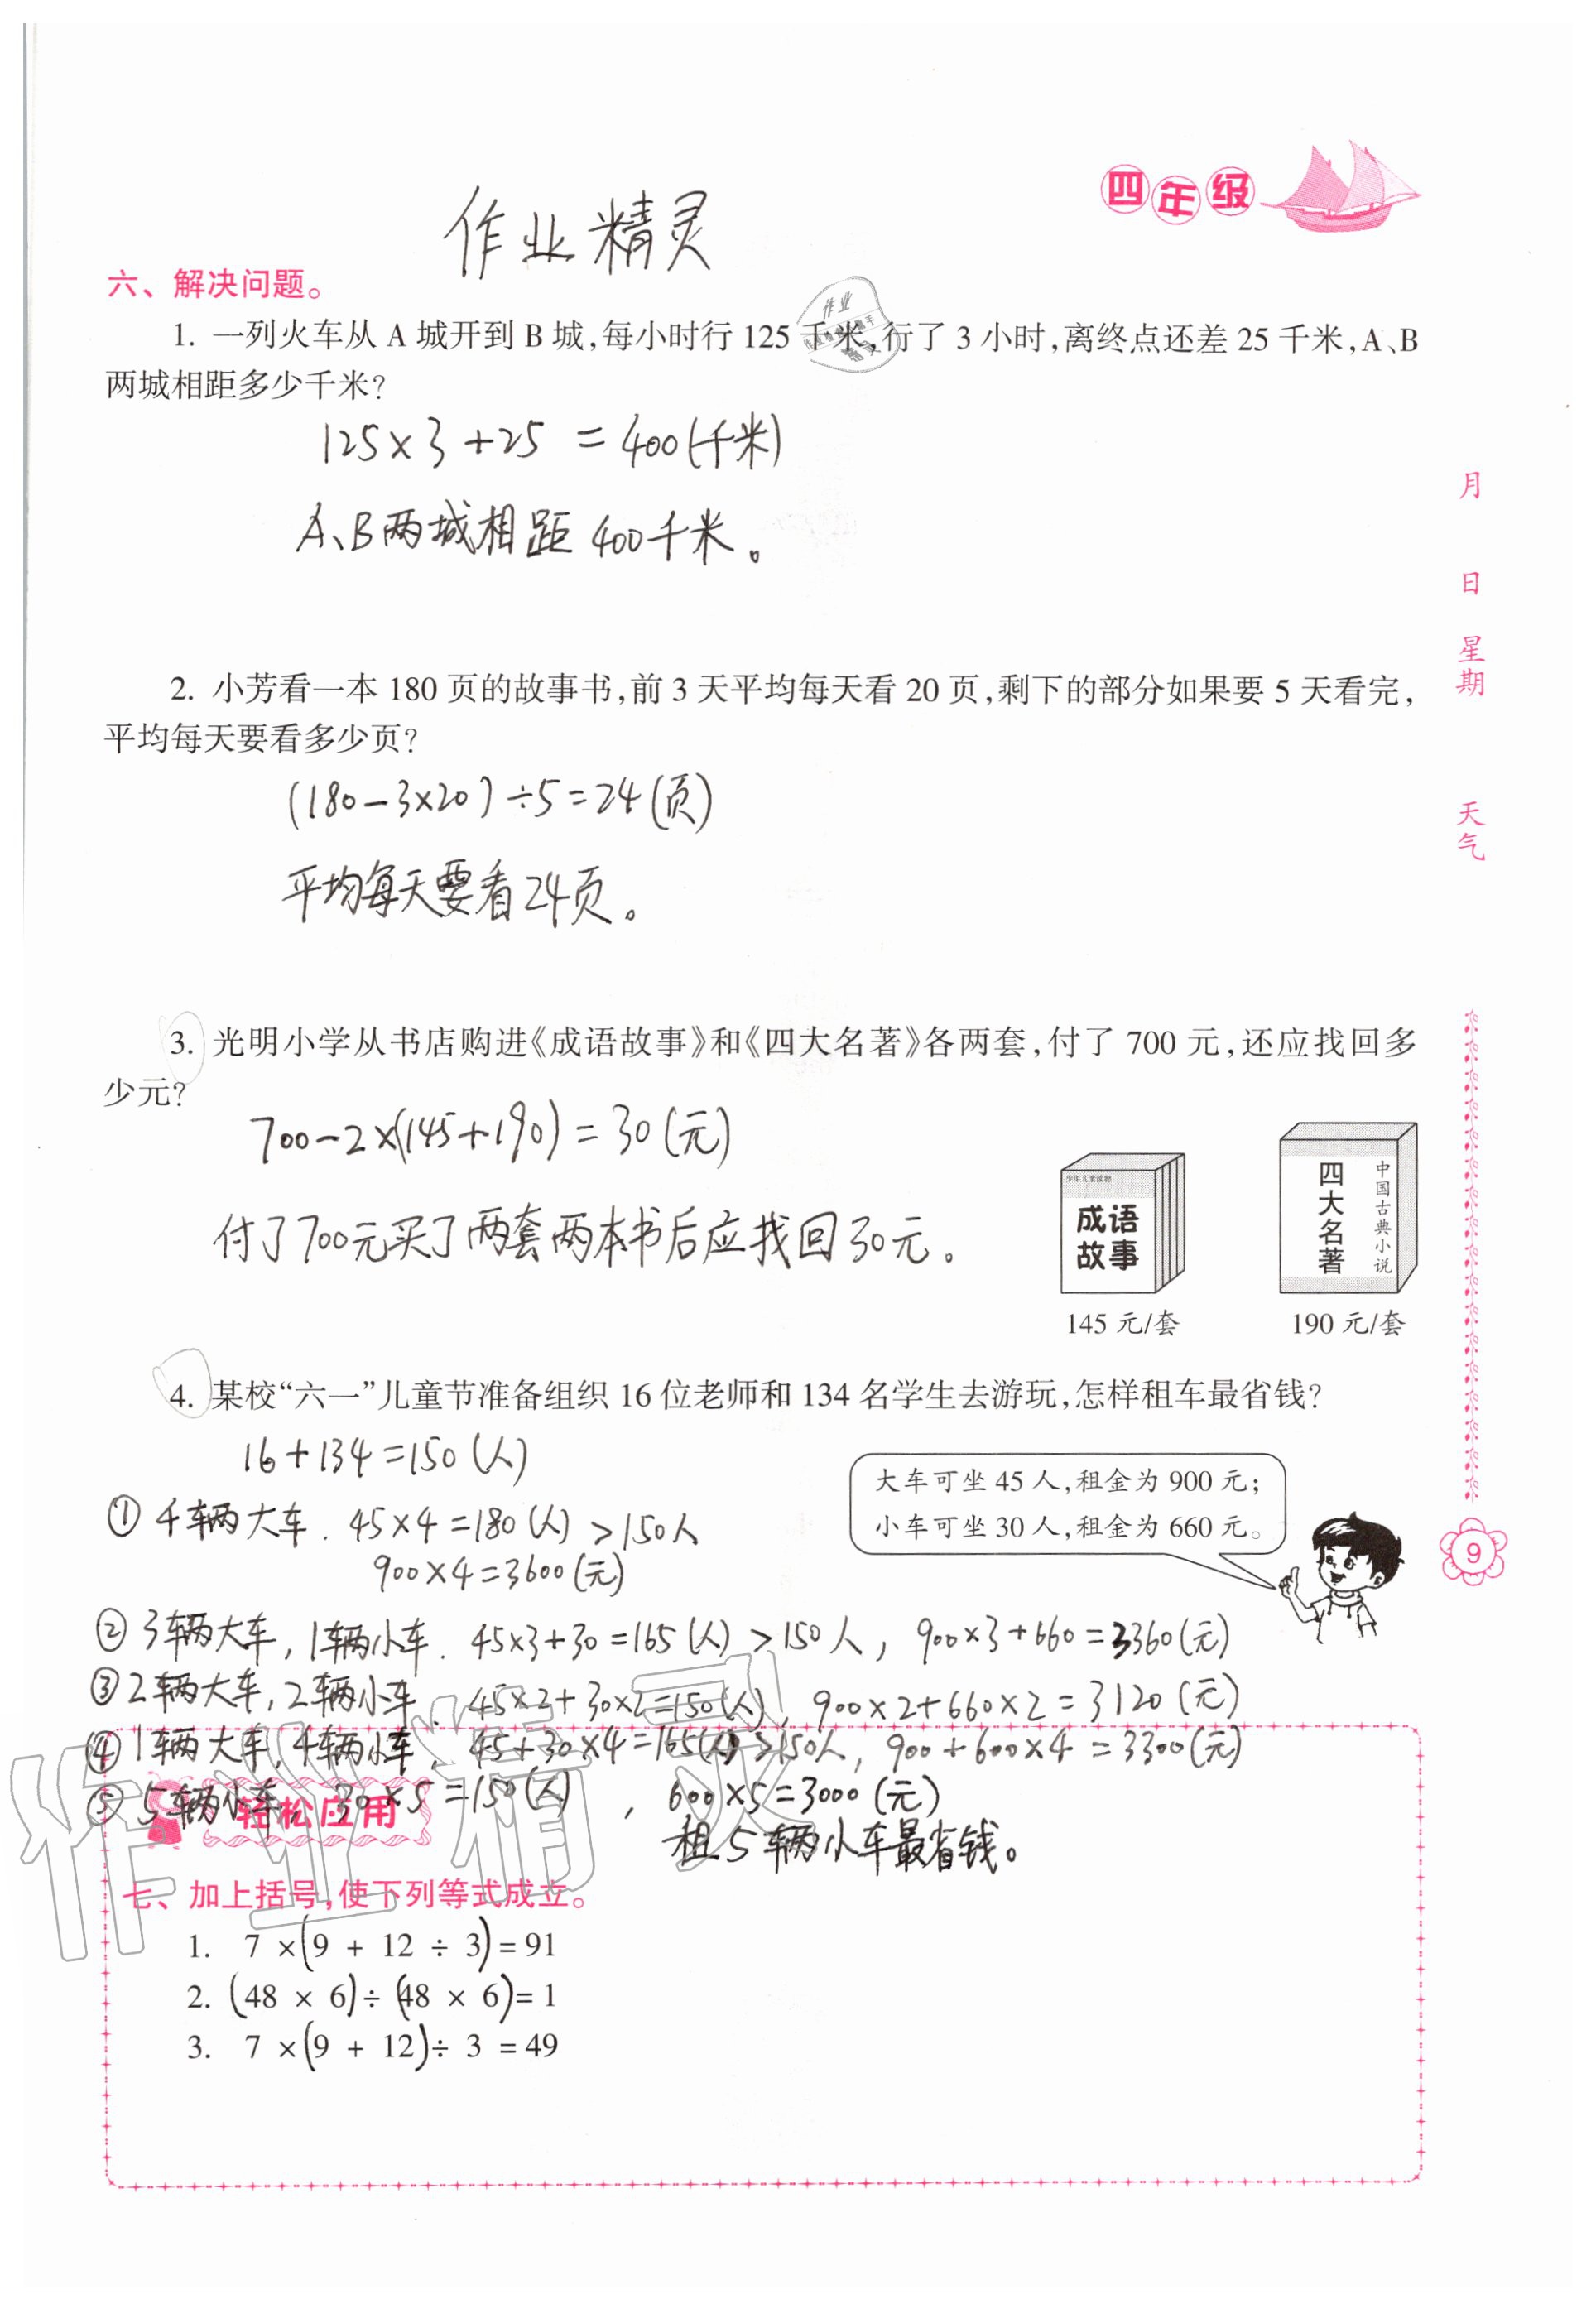 四年级
作业精灵
六、解决问题。
1. 一列火车从 A 城开到 B 城,每小时行 125 千米,行了 3 小时,离终点还差 25 千米,A、B
两城相距多少千米?
125×3+25 =400(千米)
A、B两城相距400千米。
月
日
星期
天气
2. 小芳看一本 180 页的故事书,前 3 天平均每天看 20 页,剩下的部分如果要 5 天看完,
平均每天要看多少页?
(180-3×20)÷5=24(页)
平均每天要看24页。
3. 光明小学从书店购进《成语故事》和《四大名著》各两套,付了 700 元,还应找回多
少元?
700-2×(145+190)=30(元)
付了700元买了两套两本书后应找回30元。
少年儿童读物
成语
故事
四大名著
中国古典小说
145 元/套
190 元/套
4. 某校“六一”儿童节准备组织 16 位老师和 134 名学生去游玩,怎样租车最省钱?
16+134=150(人)
大车可坐 45 人,租金为 900 元;
小车可坐 30 人,租金为 660 元。
① 4辆大车. 45×4=180(人)>150人
900×4=3600(元)
9
② 3辆大车,1辆小车. 45×3+30=165(人)>150人, 900×3+660=3360(元)
③ 2辆大车,2辆小车. 45×2+30×2=150(人), 900×2+660×2=3120(元)
④ 1辆大车,4辆小车, 45+30×4=165(人)>150人, 900+600×4=3300(元)
⑤ 5辆小车, 30×5=150(人), 600×5=3000(元)
租5辆小车最省钱。
轻松应用
作业精灵
七、加上括号,使下列等式成立。
1. 7 ×(9 + 12 ÷ 3)= 91
2. (48 × 6)÷ (48 × 6)= 1
3. 7 ×(9 + 12)÷ 3 = 49